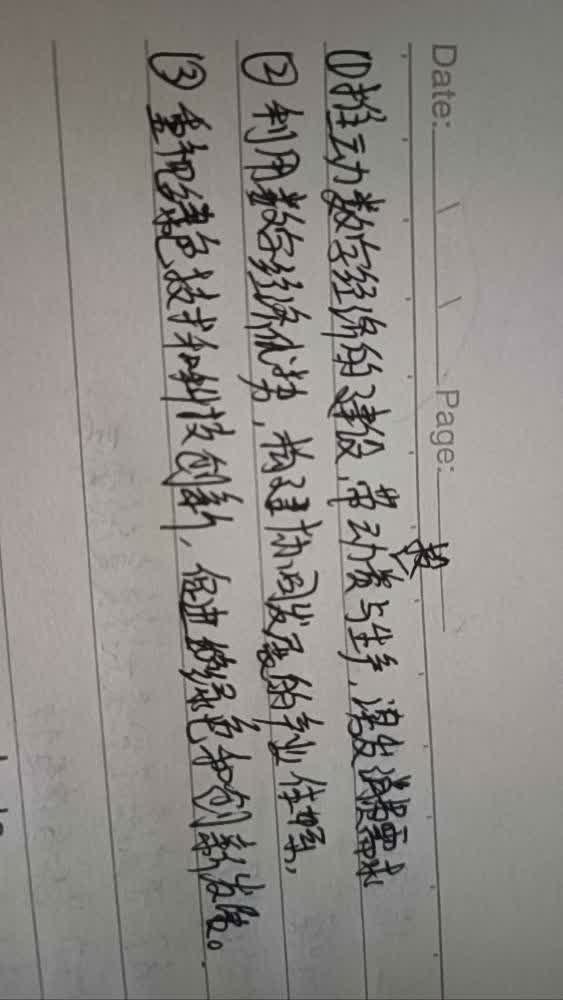 Date: Page:
①推动数字经济的建设,带动投资与生产,诱发消费需求
②利用数字经济优势,构建协同发展的产业体系,
③重视绿色技术和科技创新,促进绿色和创新发展。